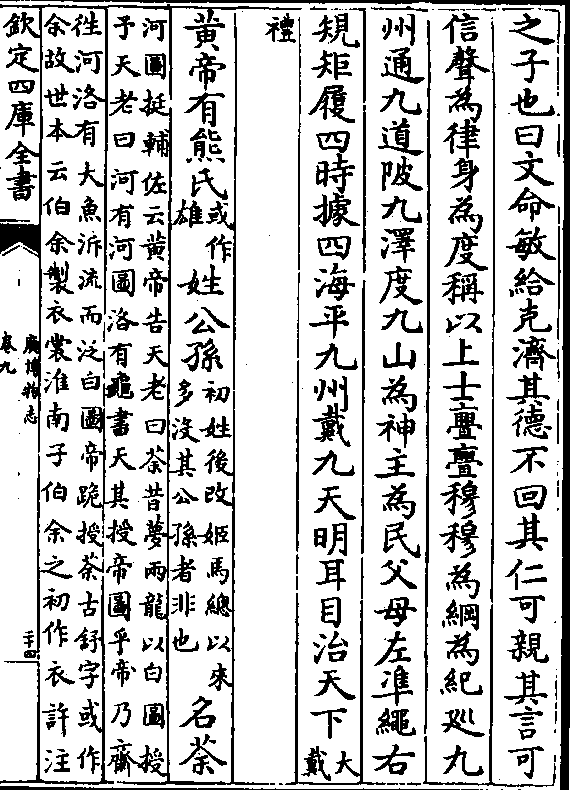 之子也曰文命敏給克濟其德不回其仁可親其言可
信聲為律身為度稱以上士亹亹穆穆為綱為紀巡九
州通九道陂九澤度九山為神主為民父母左凖繩右
規矩履四時據四海平九州戴九天明耳目治天下大戴
禮
黄帝有熊氏或作雄姓公孫初姓後改姬馬總以來多沒其公孫者非也名荼
河圖挺輔佐云黄帝告天老曰荼昔夢兩龍以白圖授
予天老曰河有河圖洛有龜書天其授帝圖乎帝乃齋
徃河洛有大魚泝流而泛白圖帝跪授荼古舒字或作
余故世本云伯余製衣裳淮南子伯余之初作衣許注
欽定四庫全書
廣博物志
卷九